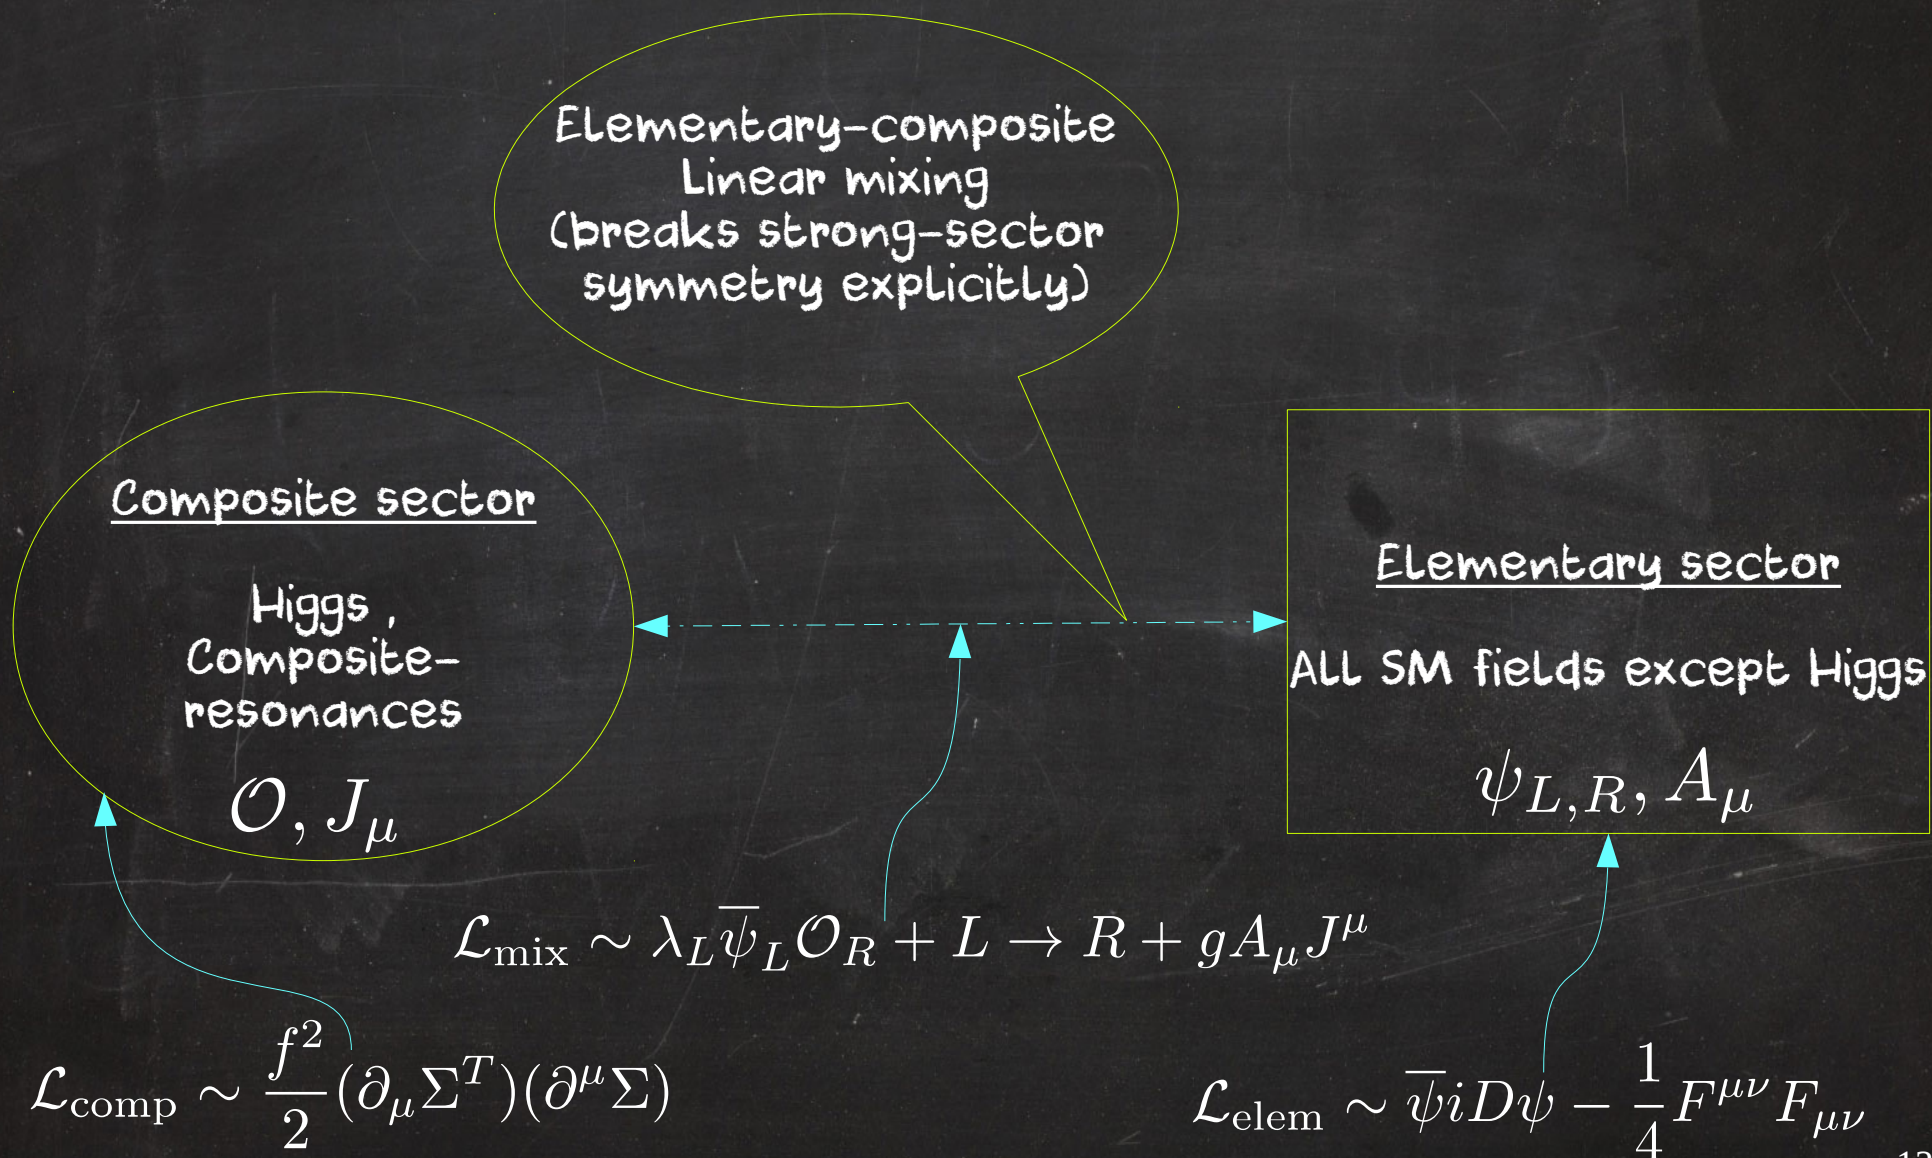 Elementary-composite
Linear mixing
(breaks strong-sector
symmetry explicitly)
Composite sector
Higgs ,
Composite-
resonances
𝒪, J_μ
Elementary sector
ALL SM fields except Higgs
ψ_{L,R}, A_μ
ℒ_mix ∼ λ_L ψ̄_L 𝒪_R + L → R + gA_μ J^μ
ℒ_comp ∼ f²/2 (∂_μ Σ^T)(∂^μ Σ)
ℒ_elem ∼ ψ̄iDψ − 1/4 F^{μν} F_{μν}